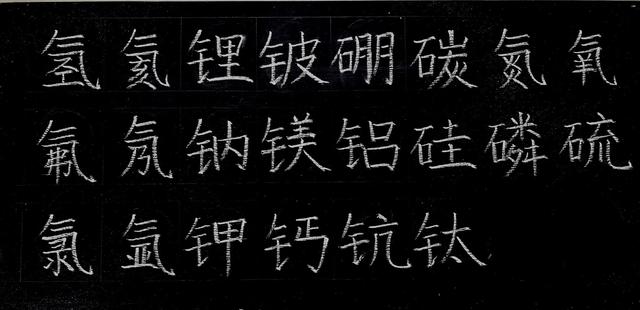 氢氦锂铍硼碳氮氧
氟氖钠镁铝硅磷硫
氯氩钾钙钪钛